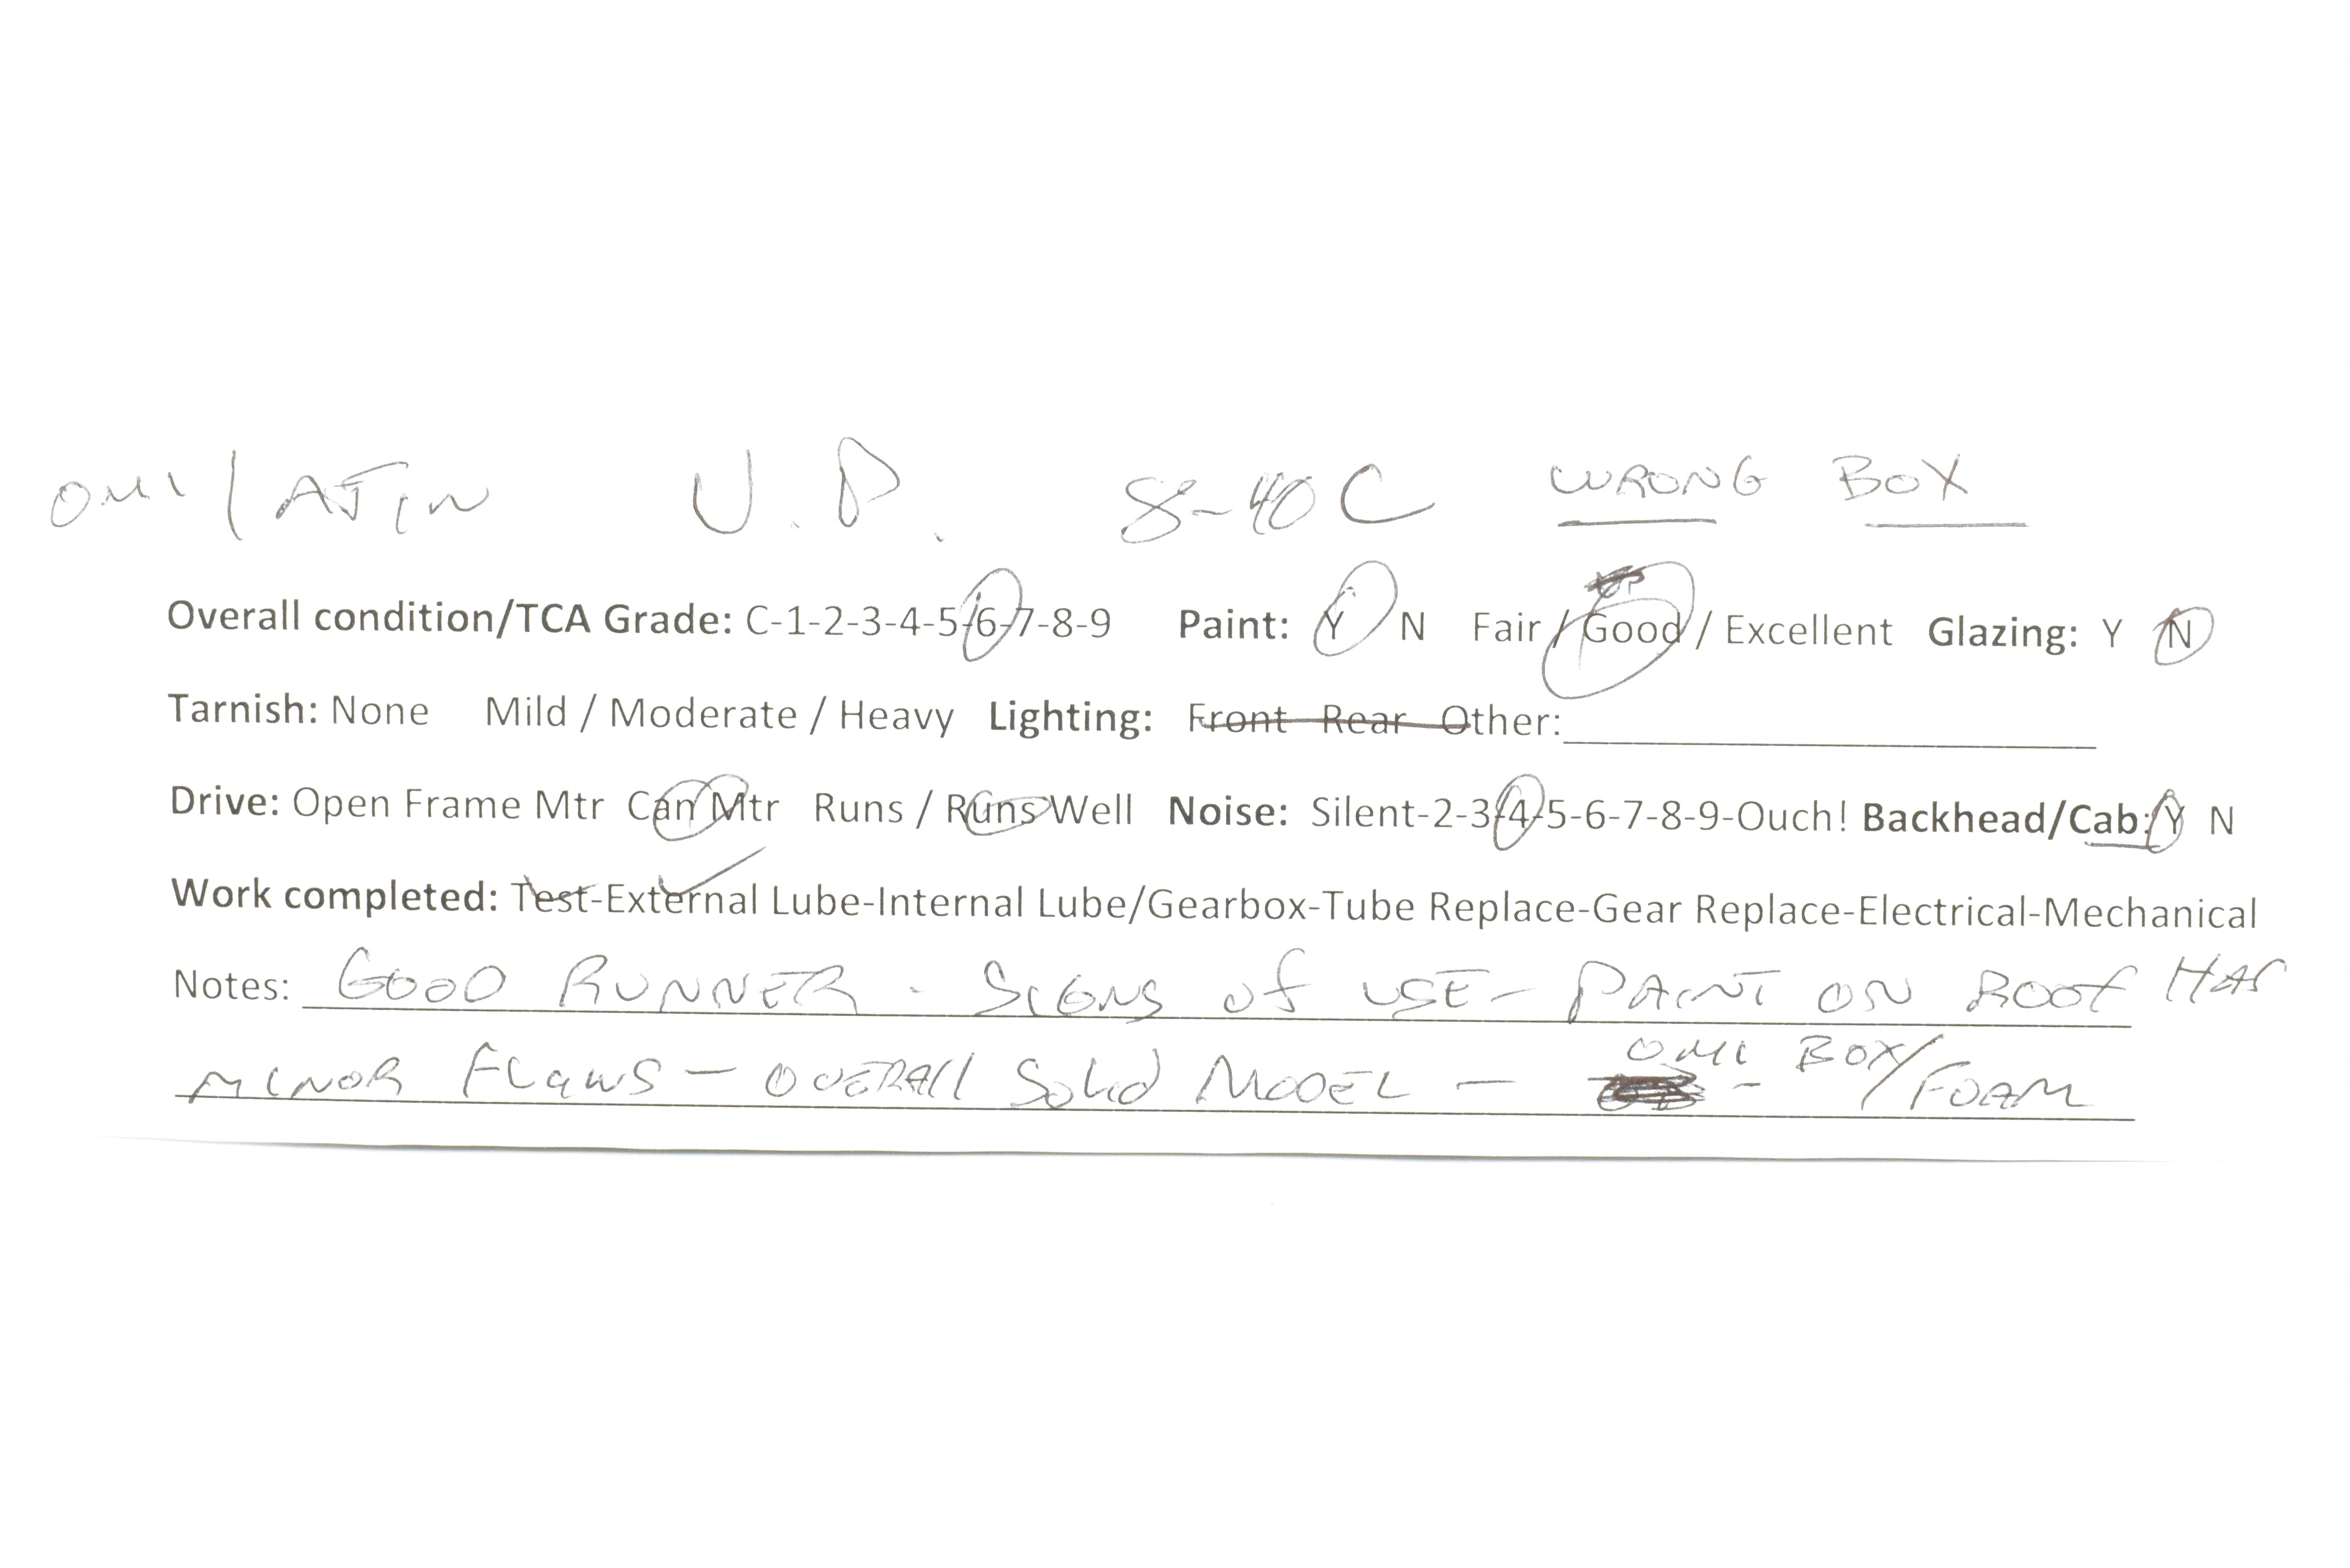 OMI / AJIN U.P. 8-40C WRONG BOX
Overall condition/TCA Grade: C-1-2-3-4-5-6-7-8-9 Paint: Y N Fair / Good / Excellent Glazing: Y N
Tarnish: None Mild / Moderate / Heavy Lighting: Front Rear Other:
Drive: Open Frame Mtr Can Mtr Runs / Runs Well Noise: Silent-2-3-4-5-6-7-8-9-Ouch! Backhead/Cab: Y N
Work completed: Test-External Lube-Internal Lube/Gearbox-Tube Replace-Gear Replace-Electrical-Mechanical
Notes: GOOD RUNNER - SIGNS OF USE - PAINT ON ROOF HAS
MINOR FLAWS - OVERALL SOLID MODEL - OMI - BOX/FOAM